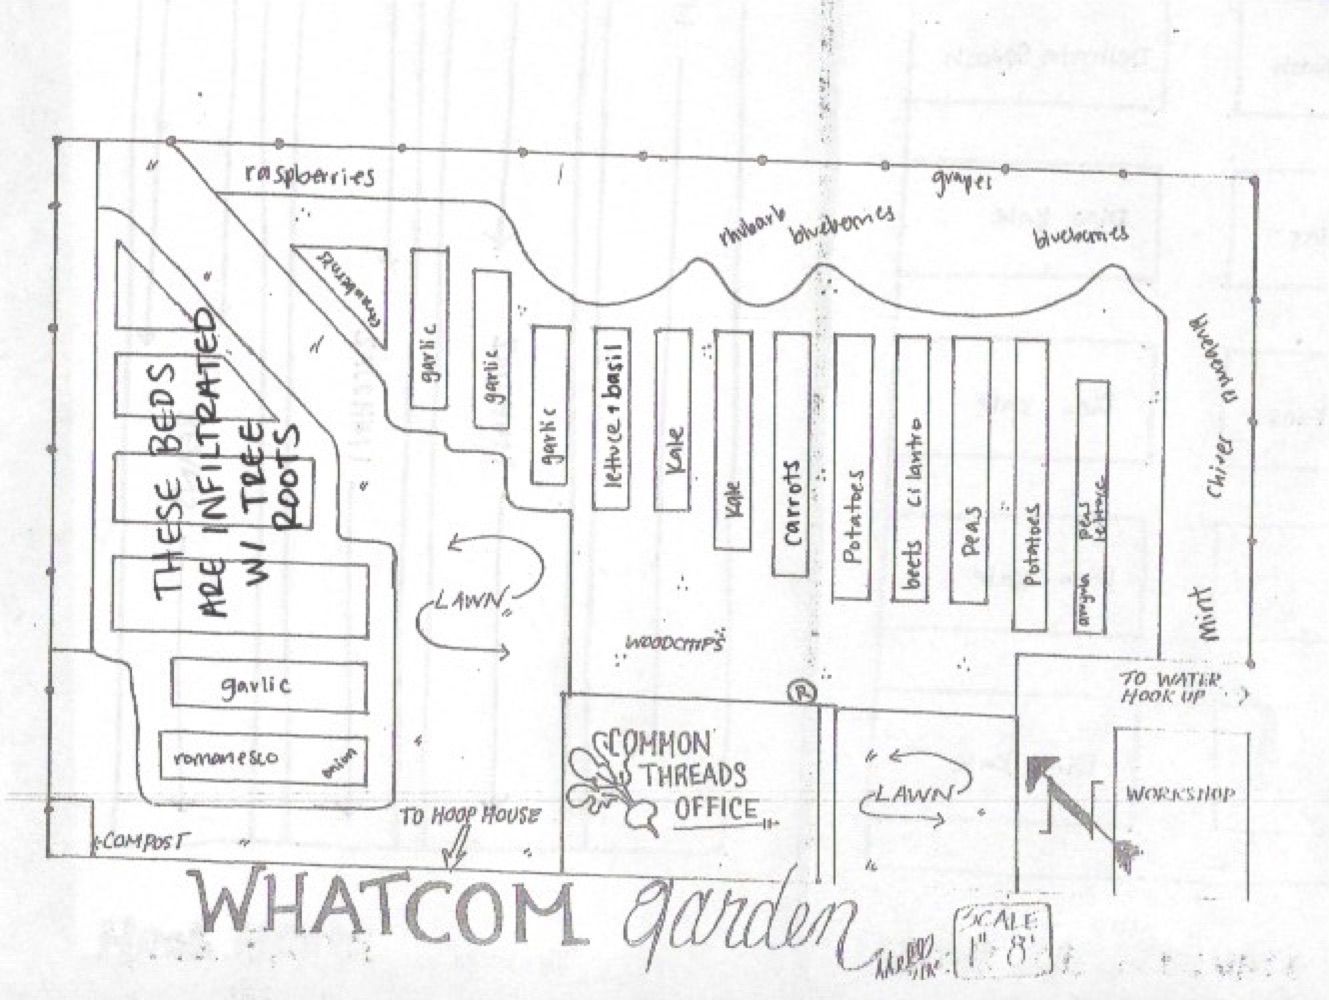 raspberries
grapes
rhubarb
blueberries
blueberries
strawberries
garlic
garlic
garlic
lettuce + basil
Kale
Kale
carrots
Potatoes
beets cilantro
peas
Potatoes
arugula peas
lettuce
blueberries
Chives
Mint
THESE BEDS
ARE INFILTRATED
W/ TREE
ROOTS
LAWN
WOODCHIPS
garlic
romanesco onion
TO WATER
HOOK UP
COMMON
THREADS
OFFICE
LAWN
WORKSHOP
TO HOOP HOUSE
COMPOST
WHATCOM garden
SCALE
1" 8'